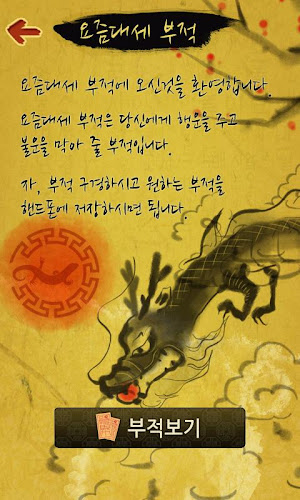 요즘대세 부적
요즘대세 부적에 오신것을 환영합니다.
요즘대세 부적은 당신에게 행운을 주고
불운을 막아 줄 부적입니다.
자, 부적 구경하시고 원하는 부적을
핸드폰에 저장하시면 됩니다.
부적보기